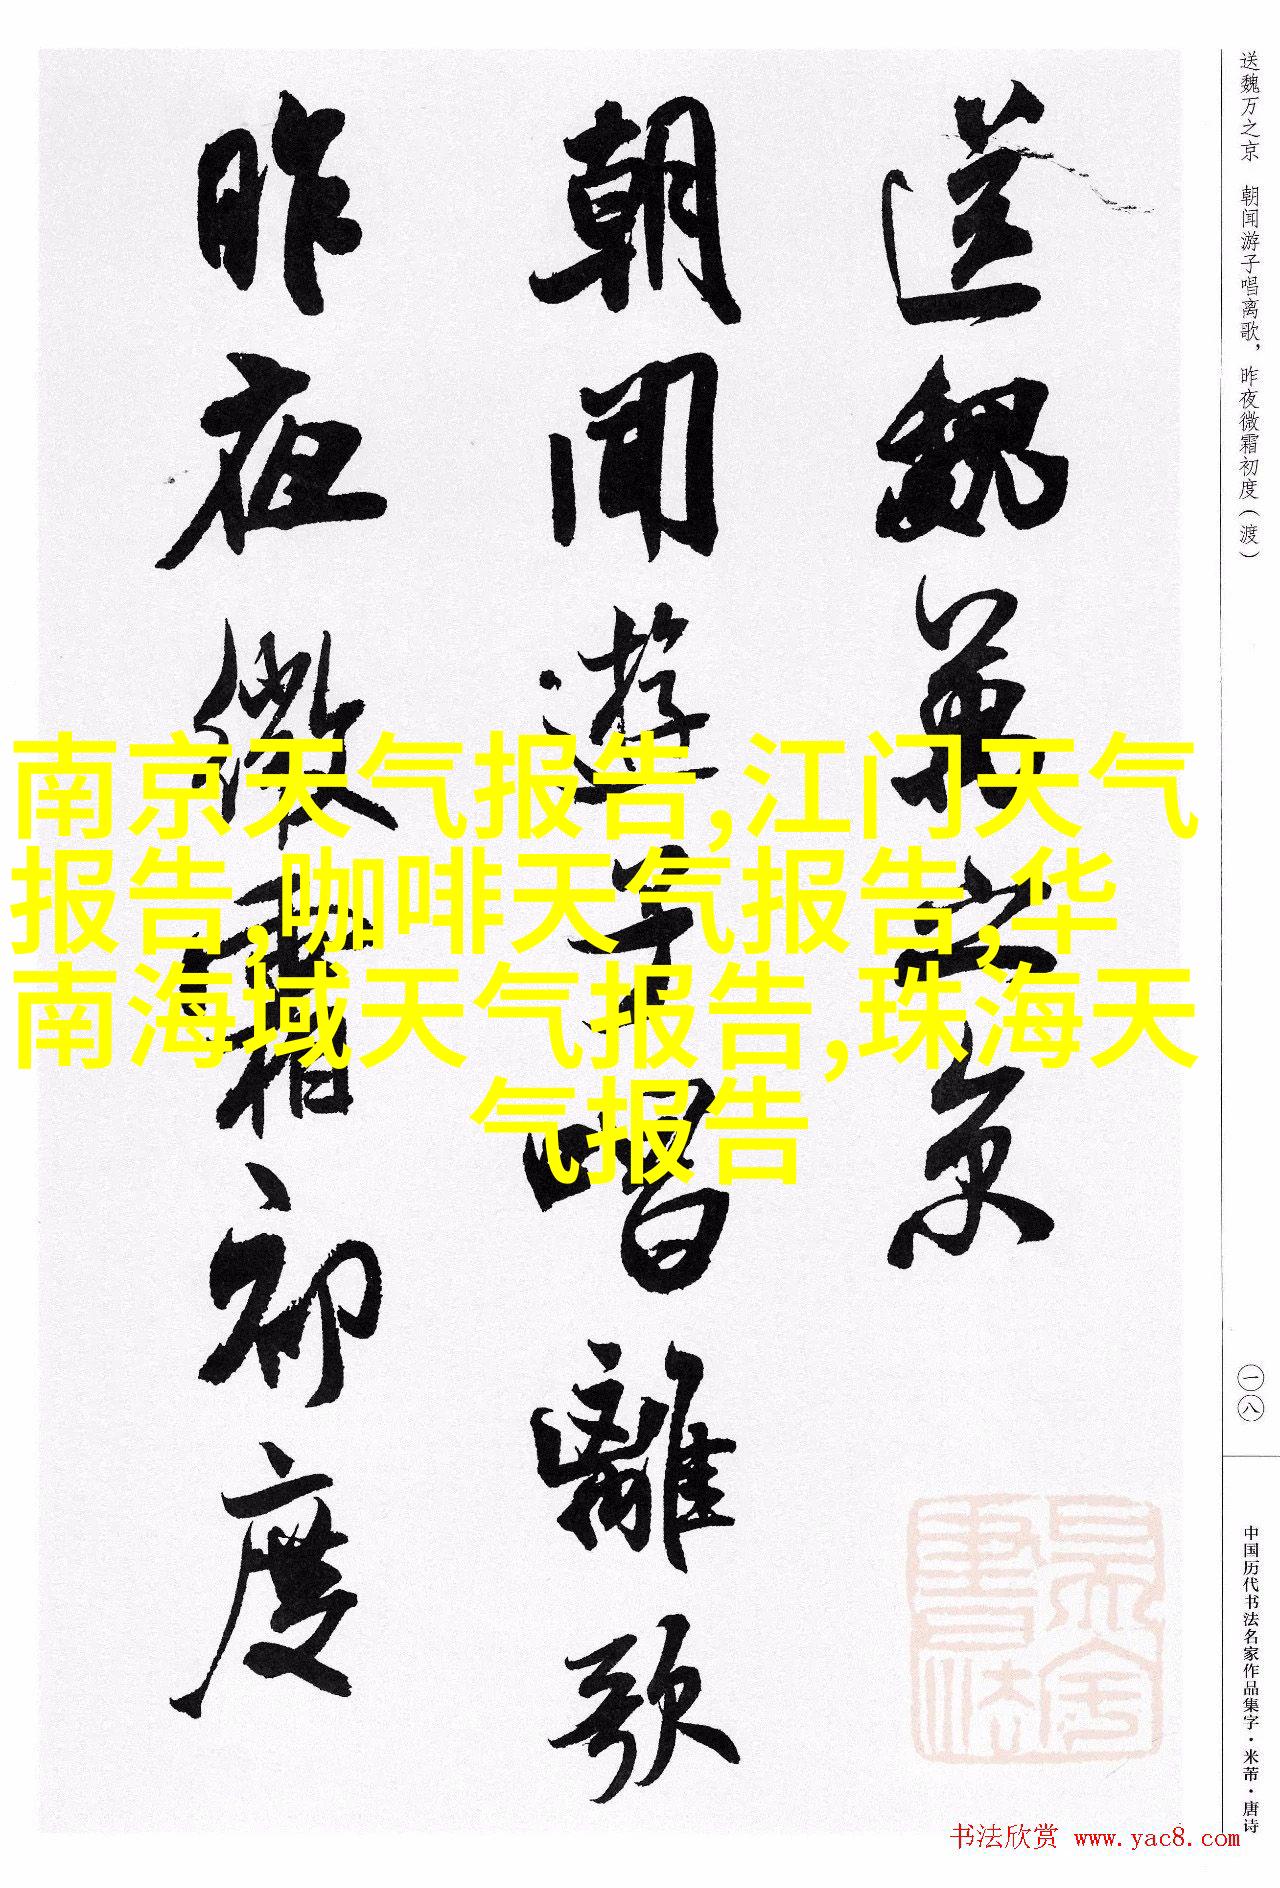 送魏万之京 朝闻游子唱离歌，昨夜微霜初度（渡）
一八
中国历代书法名家作品集字·米芾·唐诗
送魏萬之京
朝聞遊子唱離歌
昨夜微霜初度
南京天气报告,江门天气
报告,咖啡天气报告,华
南海域天气报告,珠海天
气报告
书法欣赏 www.yac8.com